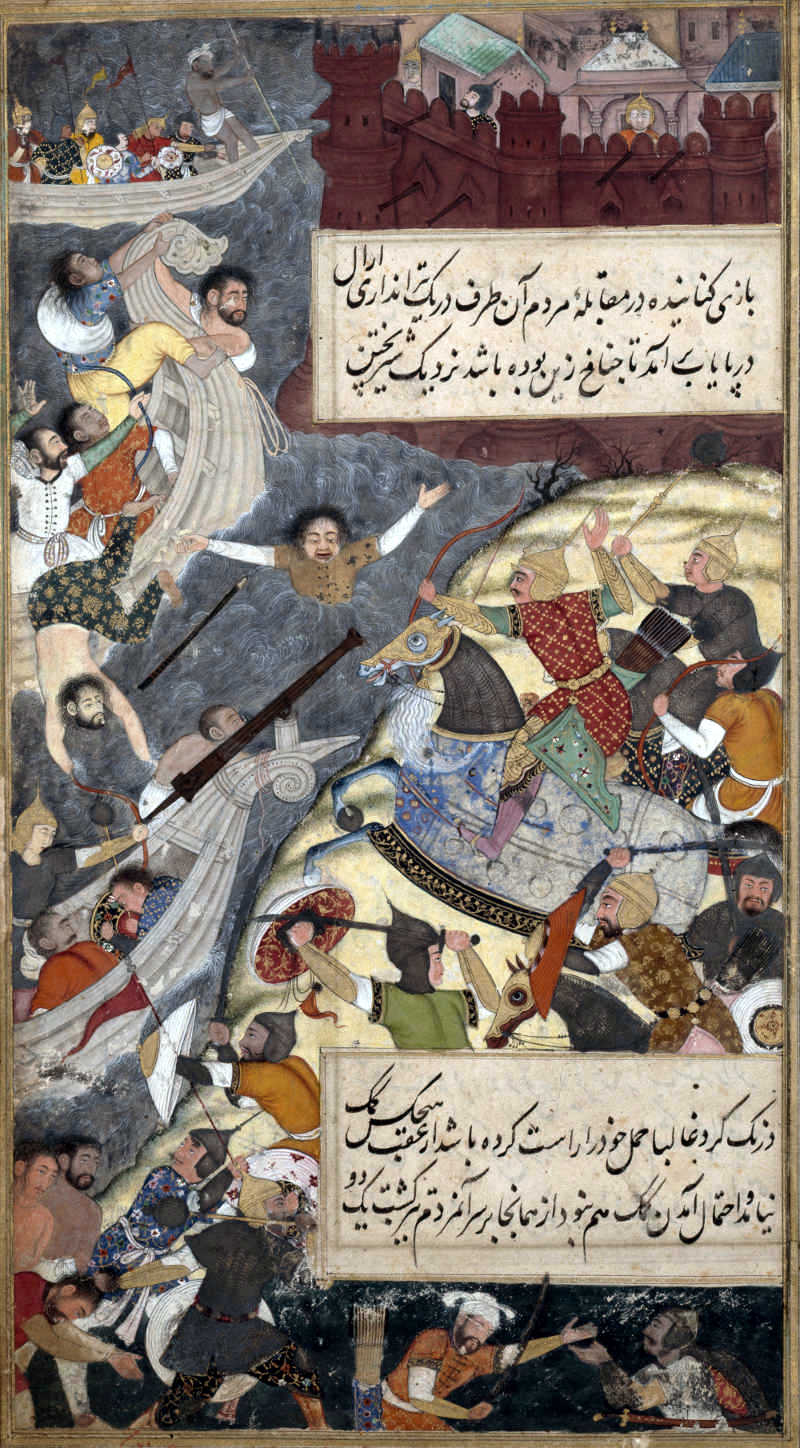 بازی کنانیده در مقابلهٔ مردم آن طرف در یک تیر اندازی ارال
در پایاب برآمد تا جناغ زین بوده باشد نزدیک شیر پختن
درنک کرد غالبا خود را راست کرده باشد از عقب هیچکس کمک
نیامد و احتمال آمدن کمک هم نبود از همانجا بر سر آن مردم برگشت یک دو